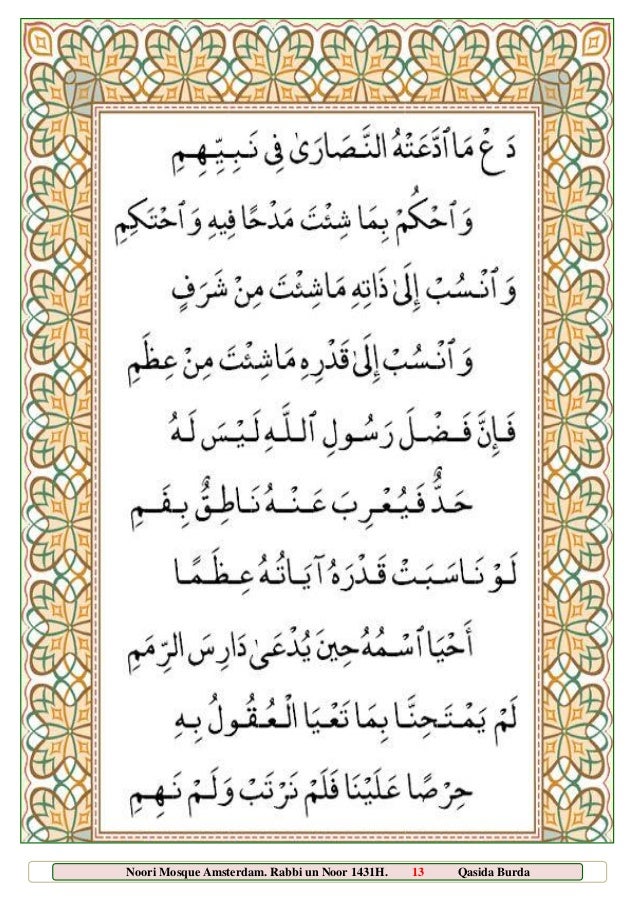 دَعْ مَا ٱدَّعَتْهُ النَّصَارَىٰ فِى نَبِيِّهِمِ
وَٱحْكُمْ بِمَا شِئْتَ مَدْحًا فِيهِ وَٱحْتَكِمِ
وَٱنْسُبْ إِلَىٰ ذَاتِهِ مَاشِئْتَ مِنْ شَرَفٍ
وَٱنْسُبْ إِلَىٰ قَدْرِهِ مَاشِئْتَ مِنْ عِظَمِ
فَإِنَّ فَضْلَ رَسُولِ ٱللَّهِ لَيْسَ لَهُ
حَدٌّ فَيُعْرِبَ عَنْهُ نَاطِقٌ بِفَمِ
لَوْ نَاسَبَتْ قَدْرَهُ آيَاتُهُ عِظَمًا
أَحْيَا ٱسْمُهُ حِينَ يُدْعَىٰ دَارِسَ الرِّمَمِ
لَمْ يَمْتَحِنَّا بِمَا تَعْيَا الْعُقُولُ بِهِ
حِرْصًا عَلَيْنَا فَلَمْ نَرْتَبْ وَلَمْ نَهِمِ
Noori Mosque Amsterdam. Rabbi un Noor 1431H. 13 Qasida Burda